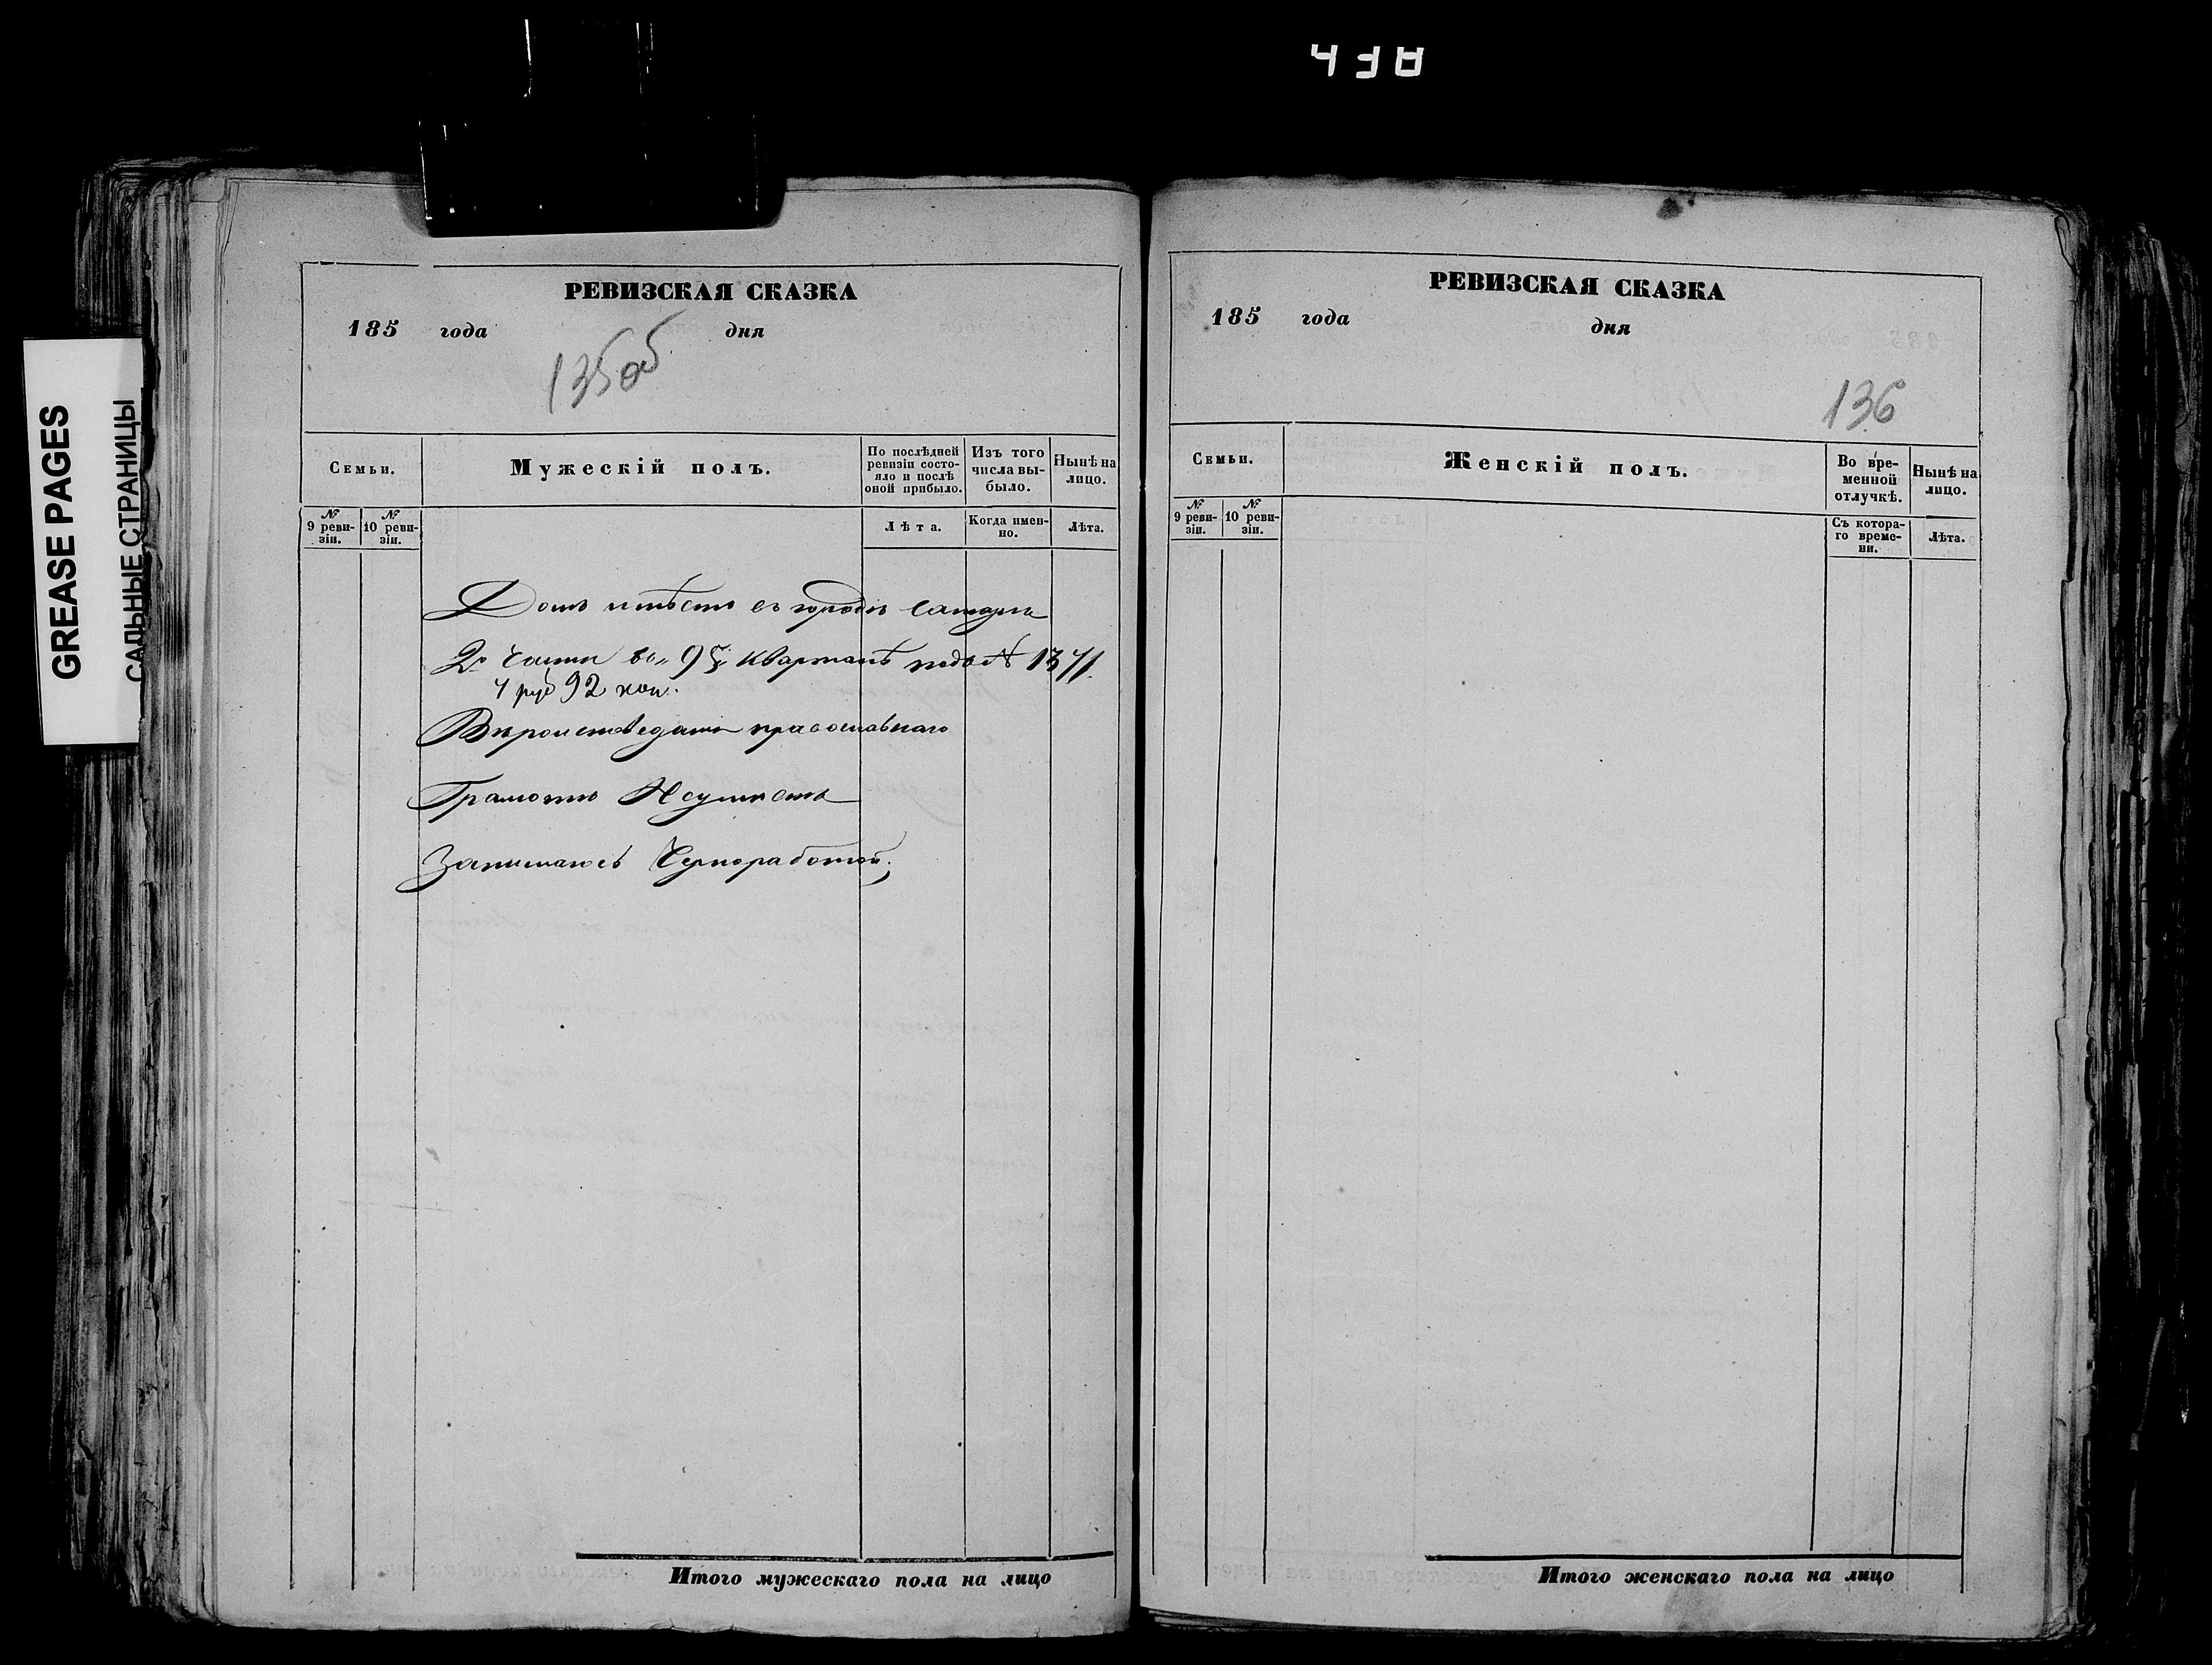 438
GREASE PAGES
САЛЬНЫЕ СТРАНИЦЫ
РЕВИЗСКАЯ СКАЗКА
185 года дня
135об
Семьи.
Мужескій полъ.
По послѣдней ревизіи состо-
яло и послѣ
оной прибыло.
Изъ того
числа вы-
было.
Нынѣ на
лицо.
№ 9 реви-
зіи.
№ 10 реви-
зіи.
Лѣта.
Когда имен-
но.
Лѣта.
Домъ имѣетъ въ городѣ Самарѣ
2й части во 95м кварталѣ подъ № 1371.
4 руб 92 коп.
Вѣроисповеданія православнаго
Грамотѣ Неумѣетъ
Занимаюсь Черноработой;
Итого мужескаго пола на лицо
РЕВИЗСКАЯ СКАЗКА
185 года дня
136
Семьи.
Женскій полъ.
Во вре-
менной
отлучкѣ.
Нынѣ на
лицо.
№ 9 реви-
зіи.
№ 10 реви-
зіи.
Съ котора-
го време-
ни.
Лѣта.
Итого женскаго пола на лицо